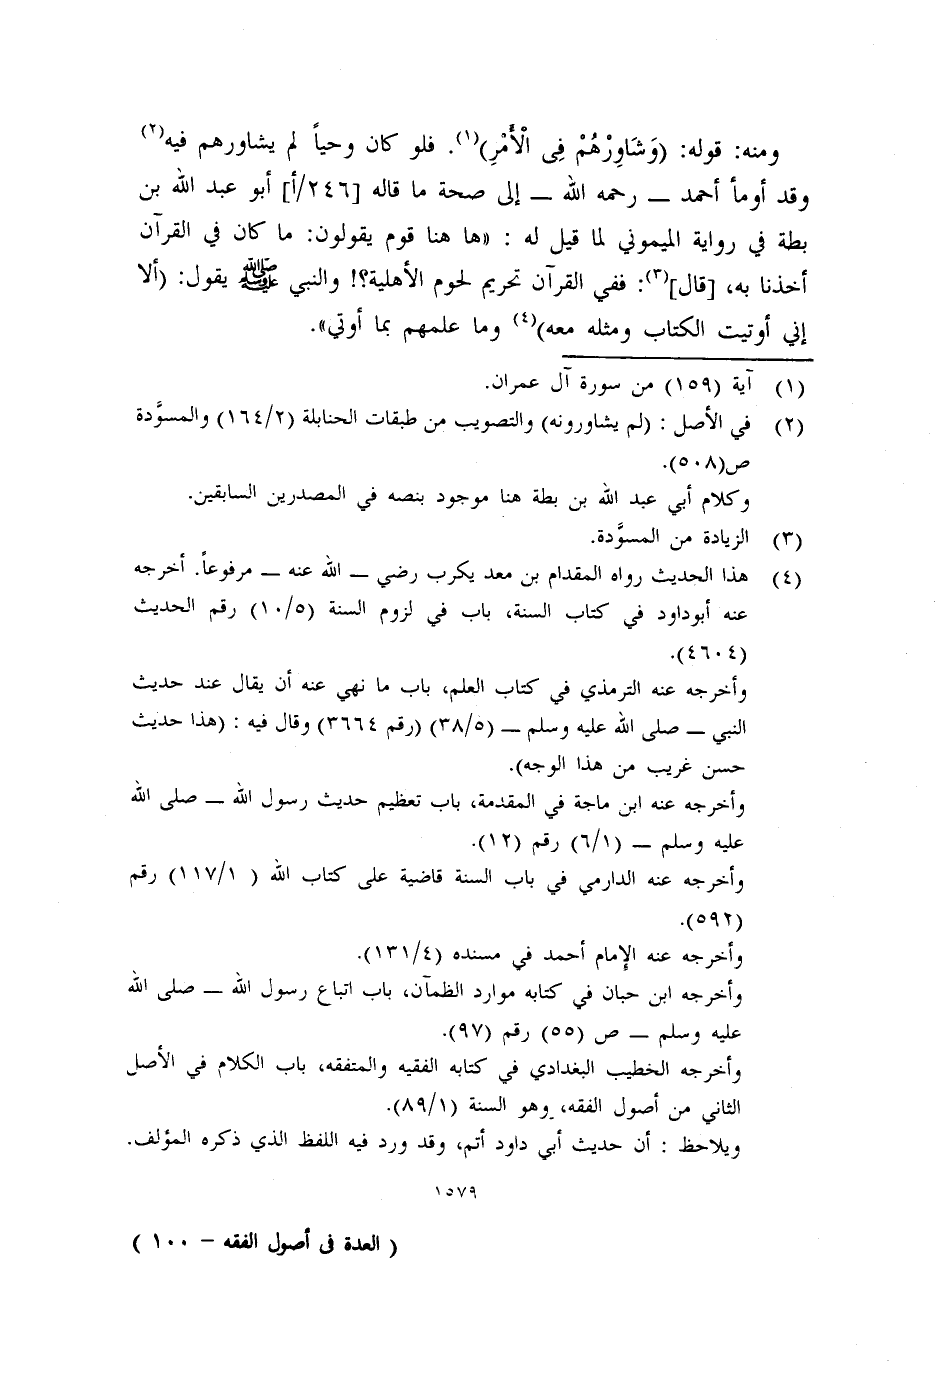 ومنه: قوله: (وَشَاوِرْهُمْ فِى الْأَمْرِ)(١). فلو كان وحياً لم يشاورهم فيه(٢)
وقد أومأ أحمد ــ رحمه الله ــ إلى صحة ما قاله [٢٤٦/أ] أبو عبد الله بن
بطة في رواية الميموني لما قيل له : «ها هنا قوم يقولون: ما كان في القرآن
أخذنا به، [قال](٣): ففي القرآن تحريم لحوم الأهلية؟! والنبي ﷺ يقول: (ألا
إني أوتيت الكتاب ومثله معه)(٤) وما علمهم بما أوتي».
(١) آية (١٥٩) من سورة آل عمران.
(٢) في الأصل : (لم يشاورونه) والتصويب من طبقات الحنابلة (١٦٤/٢) والمسوَّدة
ص(٥٠٨).
وكلام أبي عبد الله بن بطة هنا موجود بنصه في المصدرين السابقين.
(٣) الزيادة من المسوَّدة.
(٤) هذا الحديث رواه المقدام بن معد يكرب رضي ــ الله عنه ــ مرفوعاً. أخرجه
عنه أبوداود في كتاب السنة، باب في لزوم السنة (١٠/٥) رقم الحديث
(٤٦٠٤).
وأخرجه عنه الترمذي في كتاب العلم، باب ما نهي عنه أن يقال عند حديث
النبي ــ صلى الله عليه وسلم ــ (٣٨/٥) (رقم ٣٦٦٤) وقال فيه : (هذا حديث
حسن غريب من هذا الوجه).
وأخرجه عنه ابن ماجة في المقدمة، باب تعظيم حديث رسول الله ــ صلى الله
عليه وسلم ــ (٦/١) رقم (١٢).
وأخرجه عنه الدارمي في باب السنة قاضية على كتاب الله ( ١١٧/١) رقم
(٥٩٢).
وأخرجه عنه الإمام أحمد في مسنده (١٣١/٤).
وأخرجه ابن حبان في كتابه موارد الظمآن، باب اتباع رسول الله ــ صلى الله
عليه وسلم ــ ص (٥٥) رقم (٩٧).
وأخرجه الخطيب البغدادي في كتابه الفقيه والمتفقه، باب الكلام في الأصل
الثاني من أصول الفقه، وهو السنة (٨٩/١).
ويلاحظ : أن حديث أبي داود أتم، وقد ورد فيه اللفظ الذي ذكره المؤلف.
١٥٧٩
( العدة فى أصول الفقه – ١٠٠ )